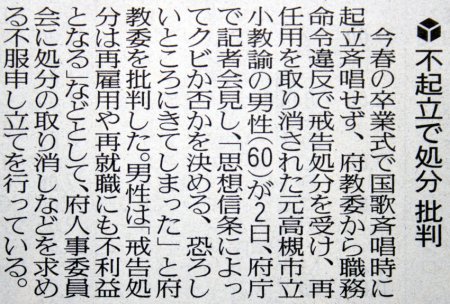 不起立で処分 批判
今春の卒業式で国歌斉唱時に
起立斉唱せず、府教委から職務
命令違反で戒告処分を受け、再
任用を取り消された元高槻市立
小教諭の男性(60)が2日、府庁
で記者会見し、「思想信条によっ
てクビか否かを決める、恐ろし
いところにきてしまった」と府
教委を批判した。男性は「戒告処
分は再雇用や再就職にも不利益
となる」などとして、府人事委員
会に処分の取り消しなどを求め
る不服申し立てを行っている。